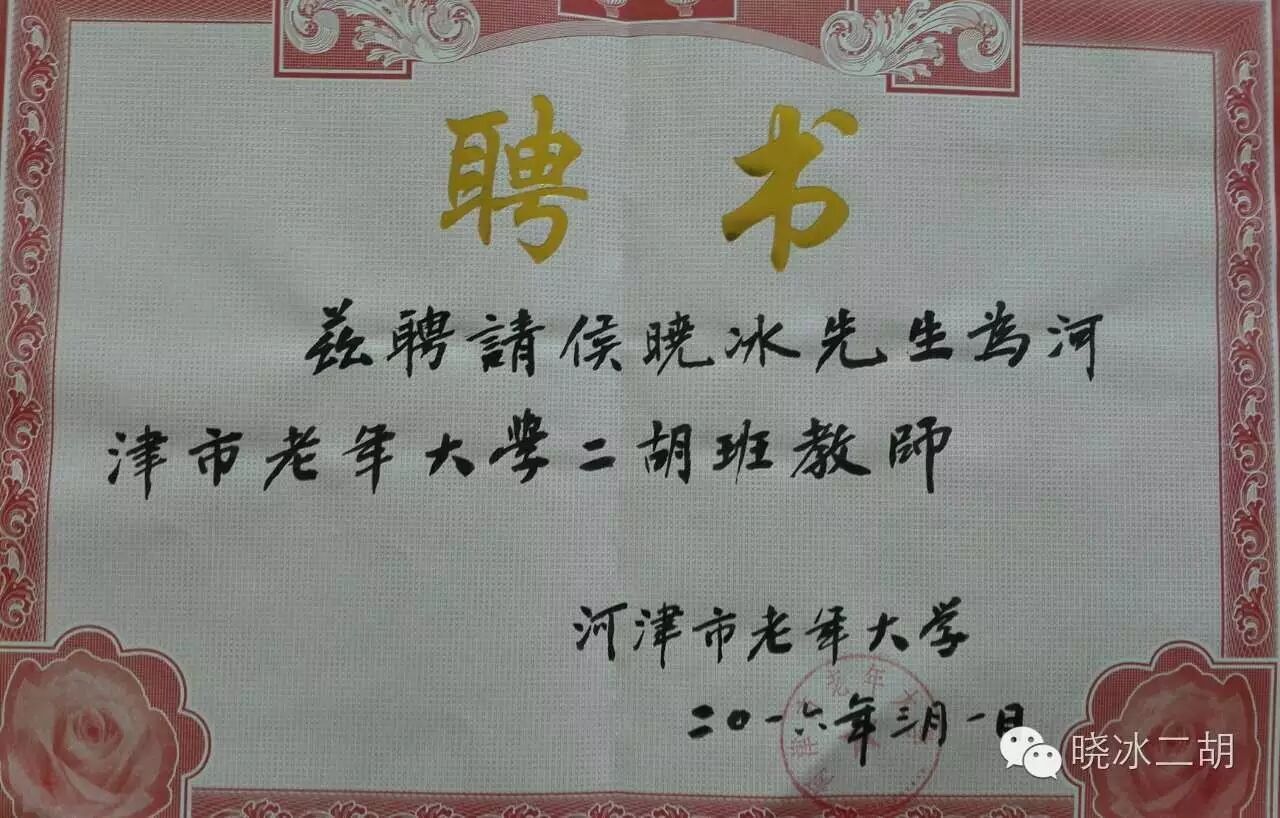 聘书
兹聘請侯曉冰先生為河
津市老年大學二胡班教師
河津市老年大学
二〇一六年三月一日
晓冰二胡